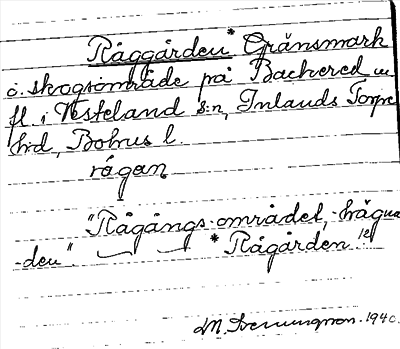 Råggården* Gränsmark
o. skogsområde på Backered m
fl i Västerland s:n, Inlands Torpe
h:d, Bohus l.
rågan
"Rågångs-området, -hägna
-den". * Rågården
1940.